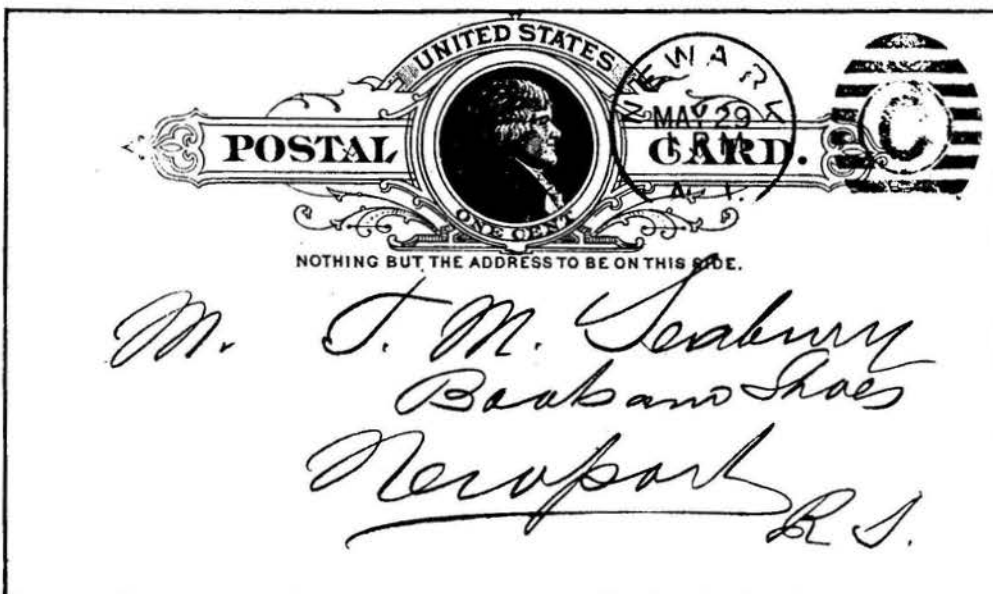 UNITED STATES
POSTAL CARD.
ONE CENT
NEWARK
MAY 29
1 PM
N.J.
C
NOTHING BUT THE ADDRESS TO BE ON THIS SIDE.
M. T. M. Seabury
Boots and Shoes
Newport
R I.